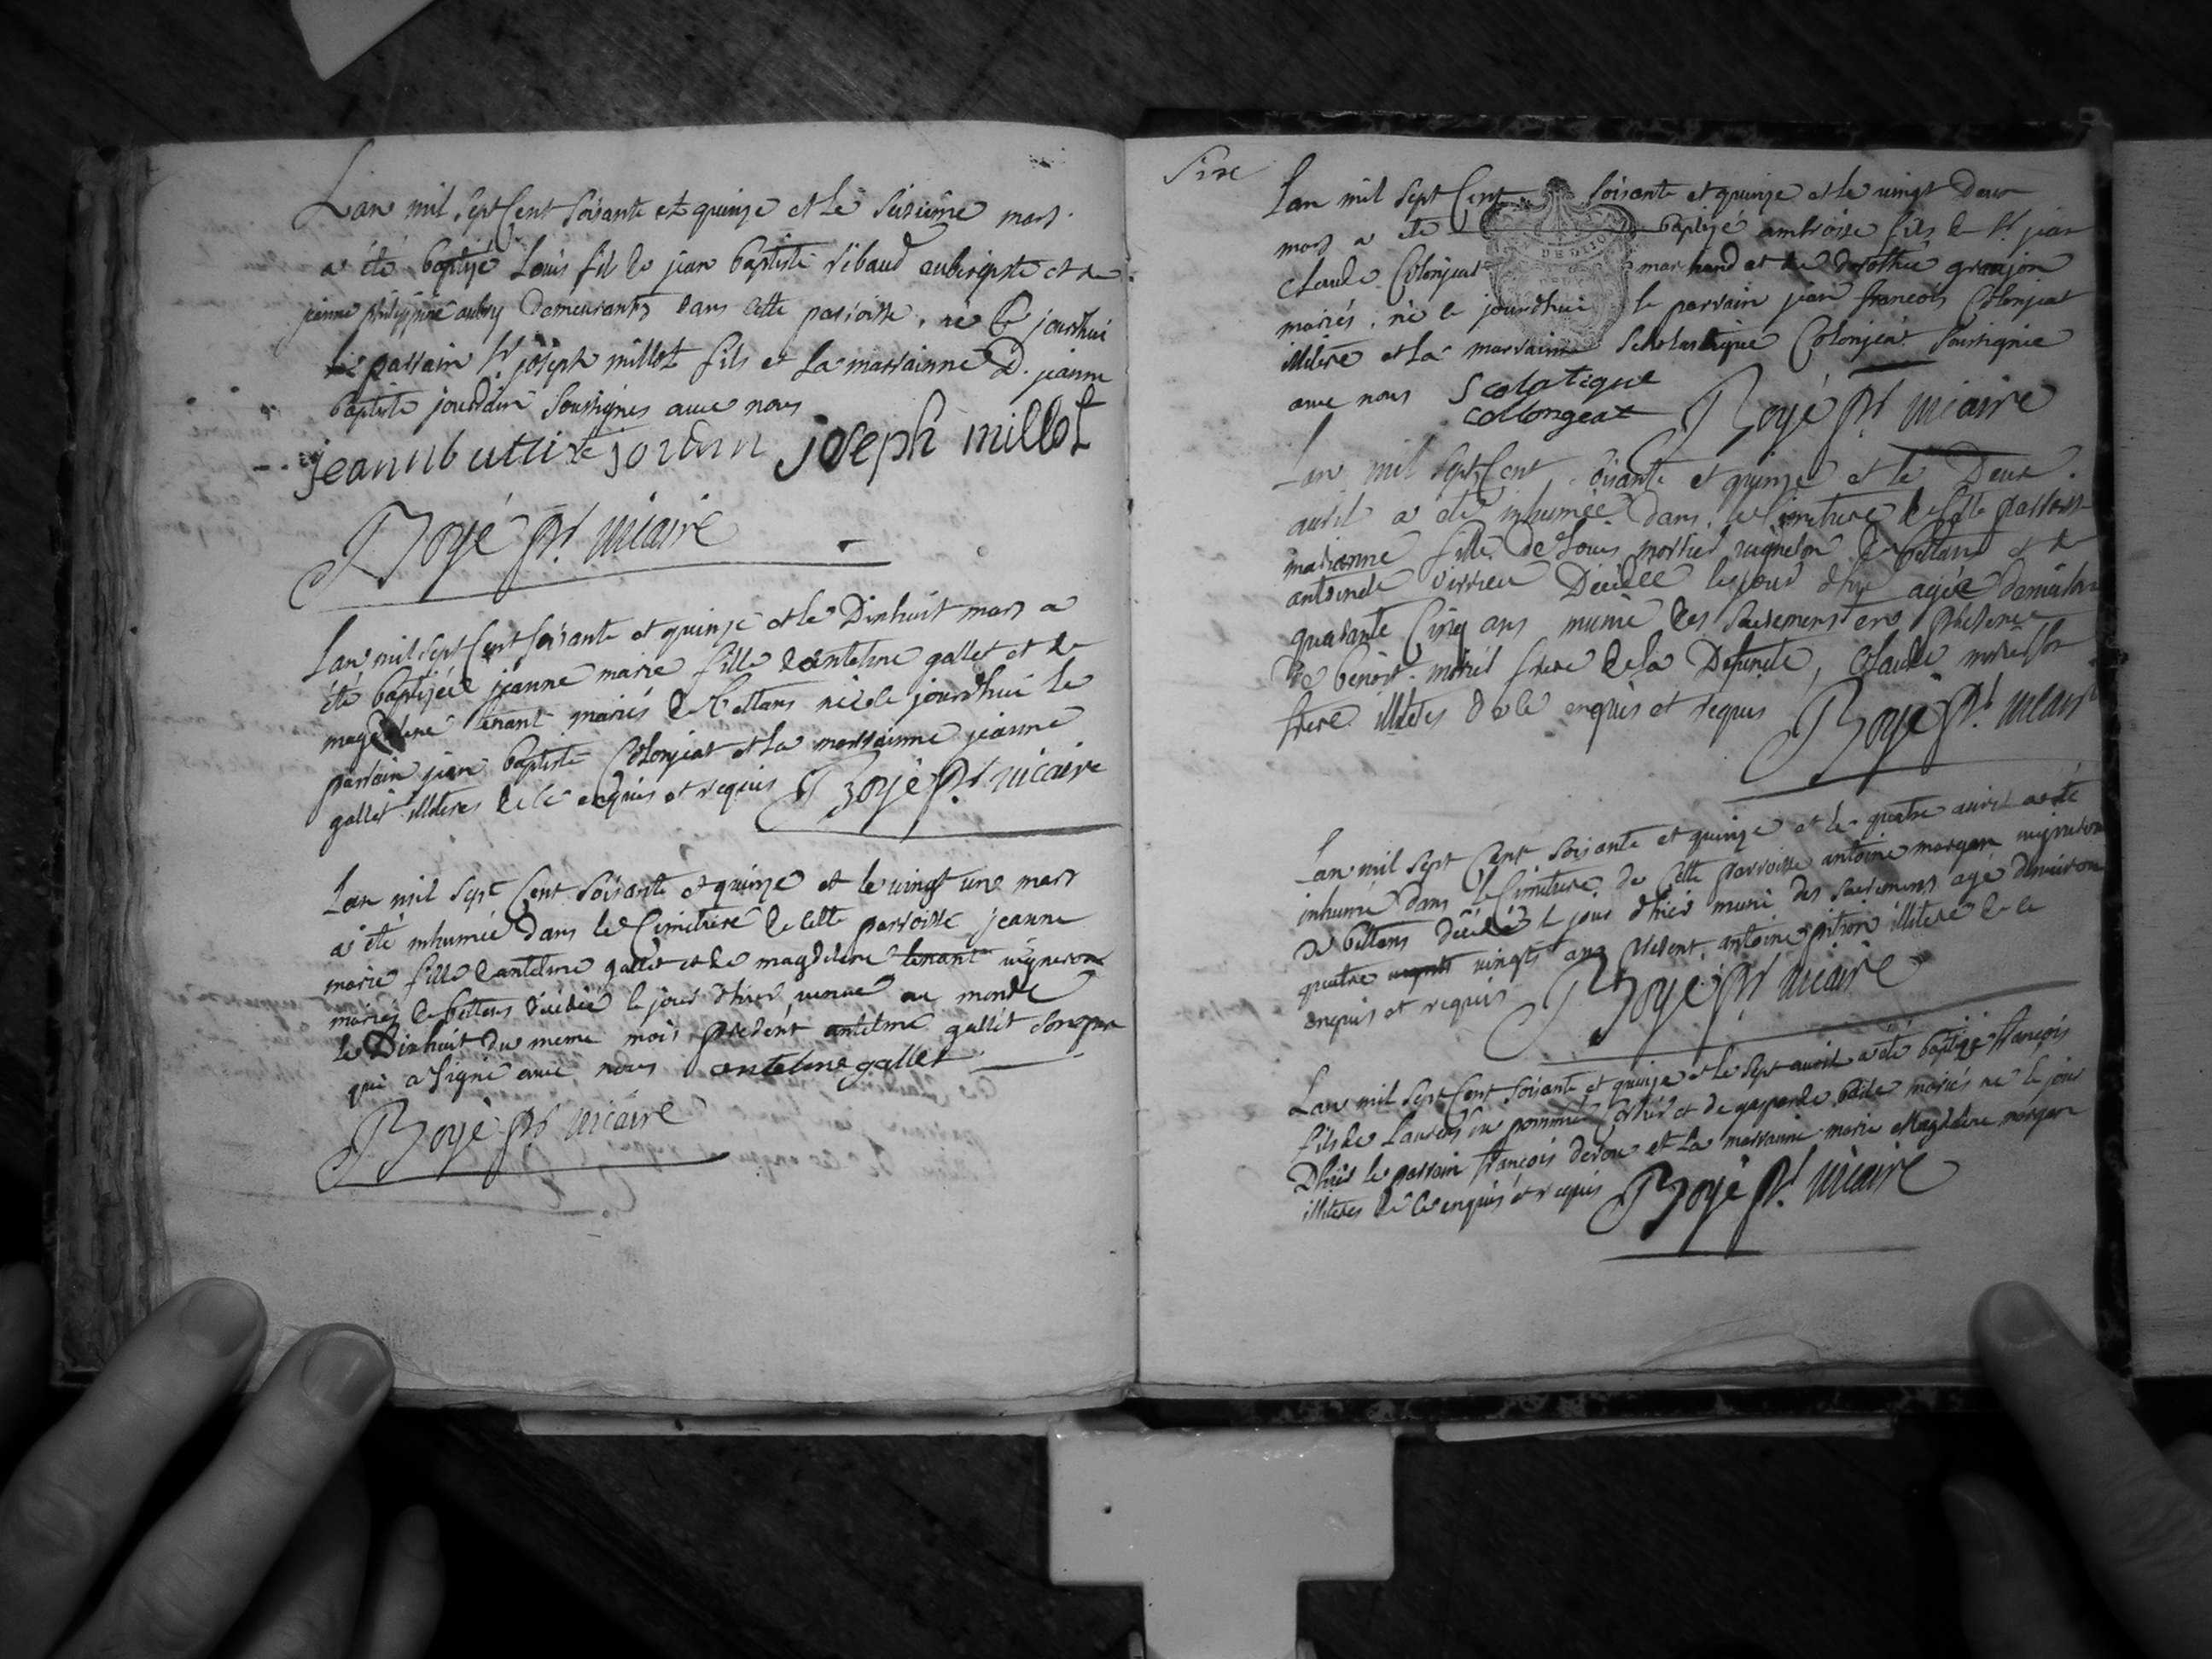 Lan mil sept Cent soisante et quinze et le seisieme mars
a été baptisé Louis fils de jean baptiste ribaud aubergiste et de
jeanne philippine aubry demeurants dans cette parroisse, né ce jourdhui
le parrain Sr joseph millot fils et la marrainne D. jeanne
baptiste jourdain soussignés avec nous
jeann batti te jordan joseph millot
Boyé ptr vicaire
Lan mil sept Cent soisante et quinze et le Dixhuit mars a
été baptisée jeanne marie fille dantelme gallet et de
magdelene tenant mariés de bettans née le jourdhui le
parrain jean baptiste Colonjeat et la marrainne jeanne
gallet illiteres de ce enquis et requis Boyé ptr vicaire
Lan mil sept Cent soisante et quinze et le vingt une mars
a été inhumée dans le Cimetiere de cette parroisse jeanne
marie fille dantelme gallet et de magdelene tenant vigneron
mariés de bettans décédée le jour dhier venue au monde
le Dixhuit du meme mois present antelme gallet son pere
qui a signé avec nous antelme gallet
Boyé ptr vicaire
Lan mil sept Cent soisante et quinze et le vingt Deux
mars a été baptisé ambroise fils de Sr jean
Claude Colonjeat marchand et de dorothée granjon
mariés, né le jourdhui le parrain jean francois Colonjeat
illitere et la marraine Scholastique Colonjeat soussignée
avec nous Scolatique
collongeat Boyé ptr vicaire
Lan mil sept Cent soisante et quinze et le Deux
avril a été inhumée dans le Cimetiere de cette parroisse
marianne fille de Louis morliet vigneron de bettans et de
antoinete virrieu Décédée le jour dhier agée denviron
quarante Cinq ans munie des sacremens en presence
de benoit morlet frere de la Defuncte, Claude
frere illiteres de ce enquis et requis Boyé ptr vicaire
Lan mil sept Cent soisante et quinze et le quatre avril a été
inhumé dans le Cimetiere de cette parroisse antoine morgon vigneron
de bettans décédé le jour dhier muni des sacremens agé denviron
quatre vingts ans present antoine pition illitere de ce
enquis et requis Boyé ptr vicaire
Lan mil sept Cent soisante et quinze et le sept avril a été baptisé françois
fils de Laurens du pommié et de gasparde mariés né le jour
Dhier le parrain françois et la marraine marie Magdelene morgon
illiteres de ce enquis et requis Boyé ptr vicaire